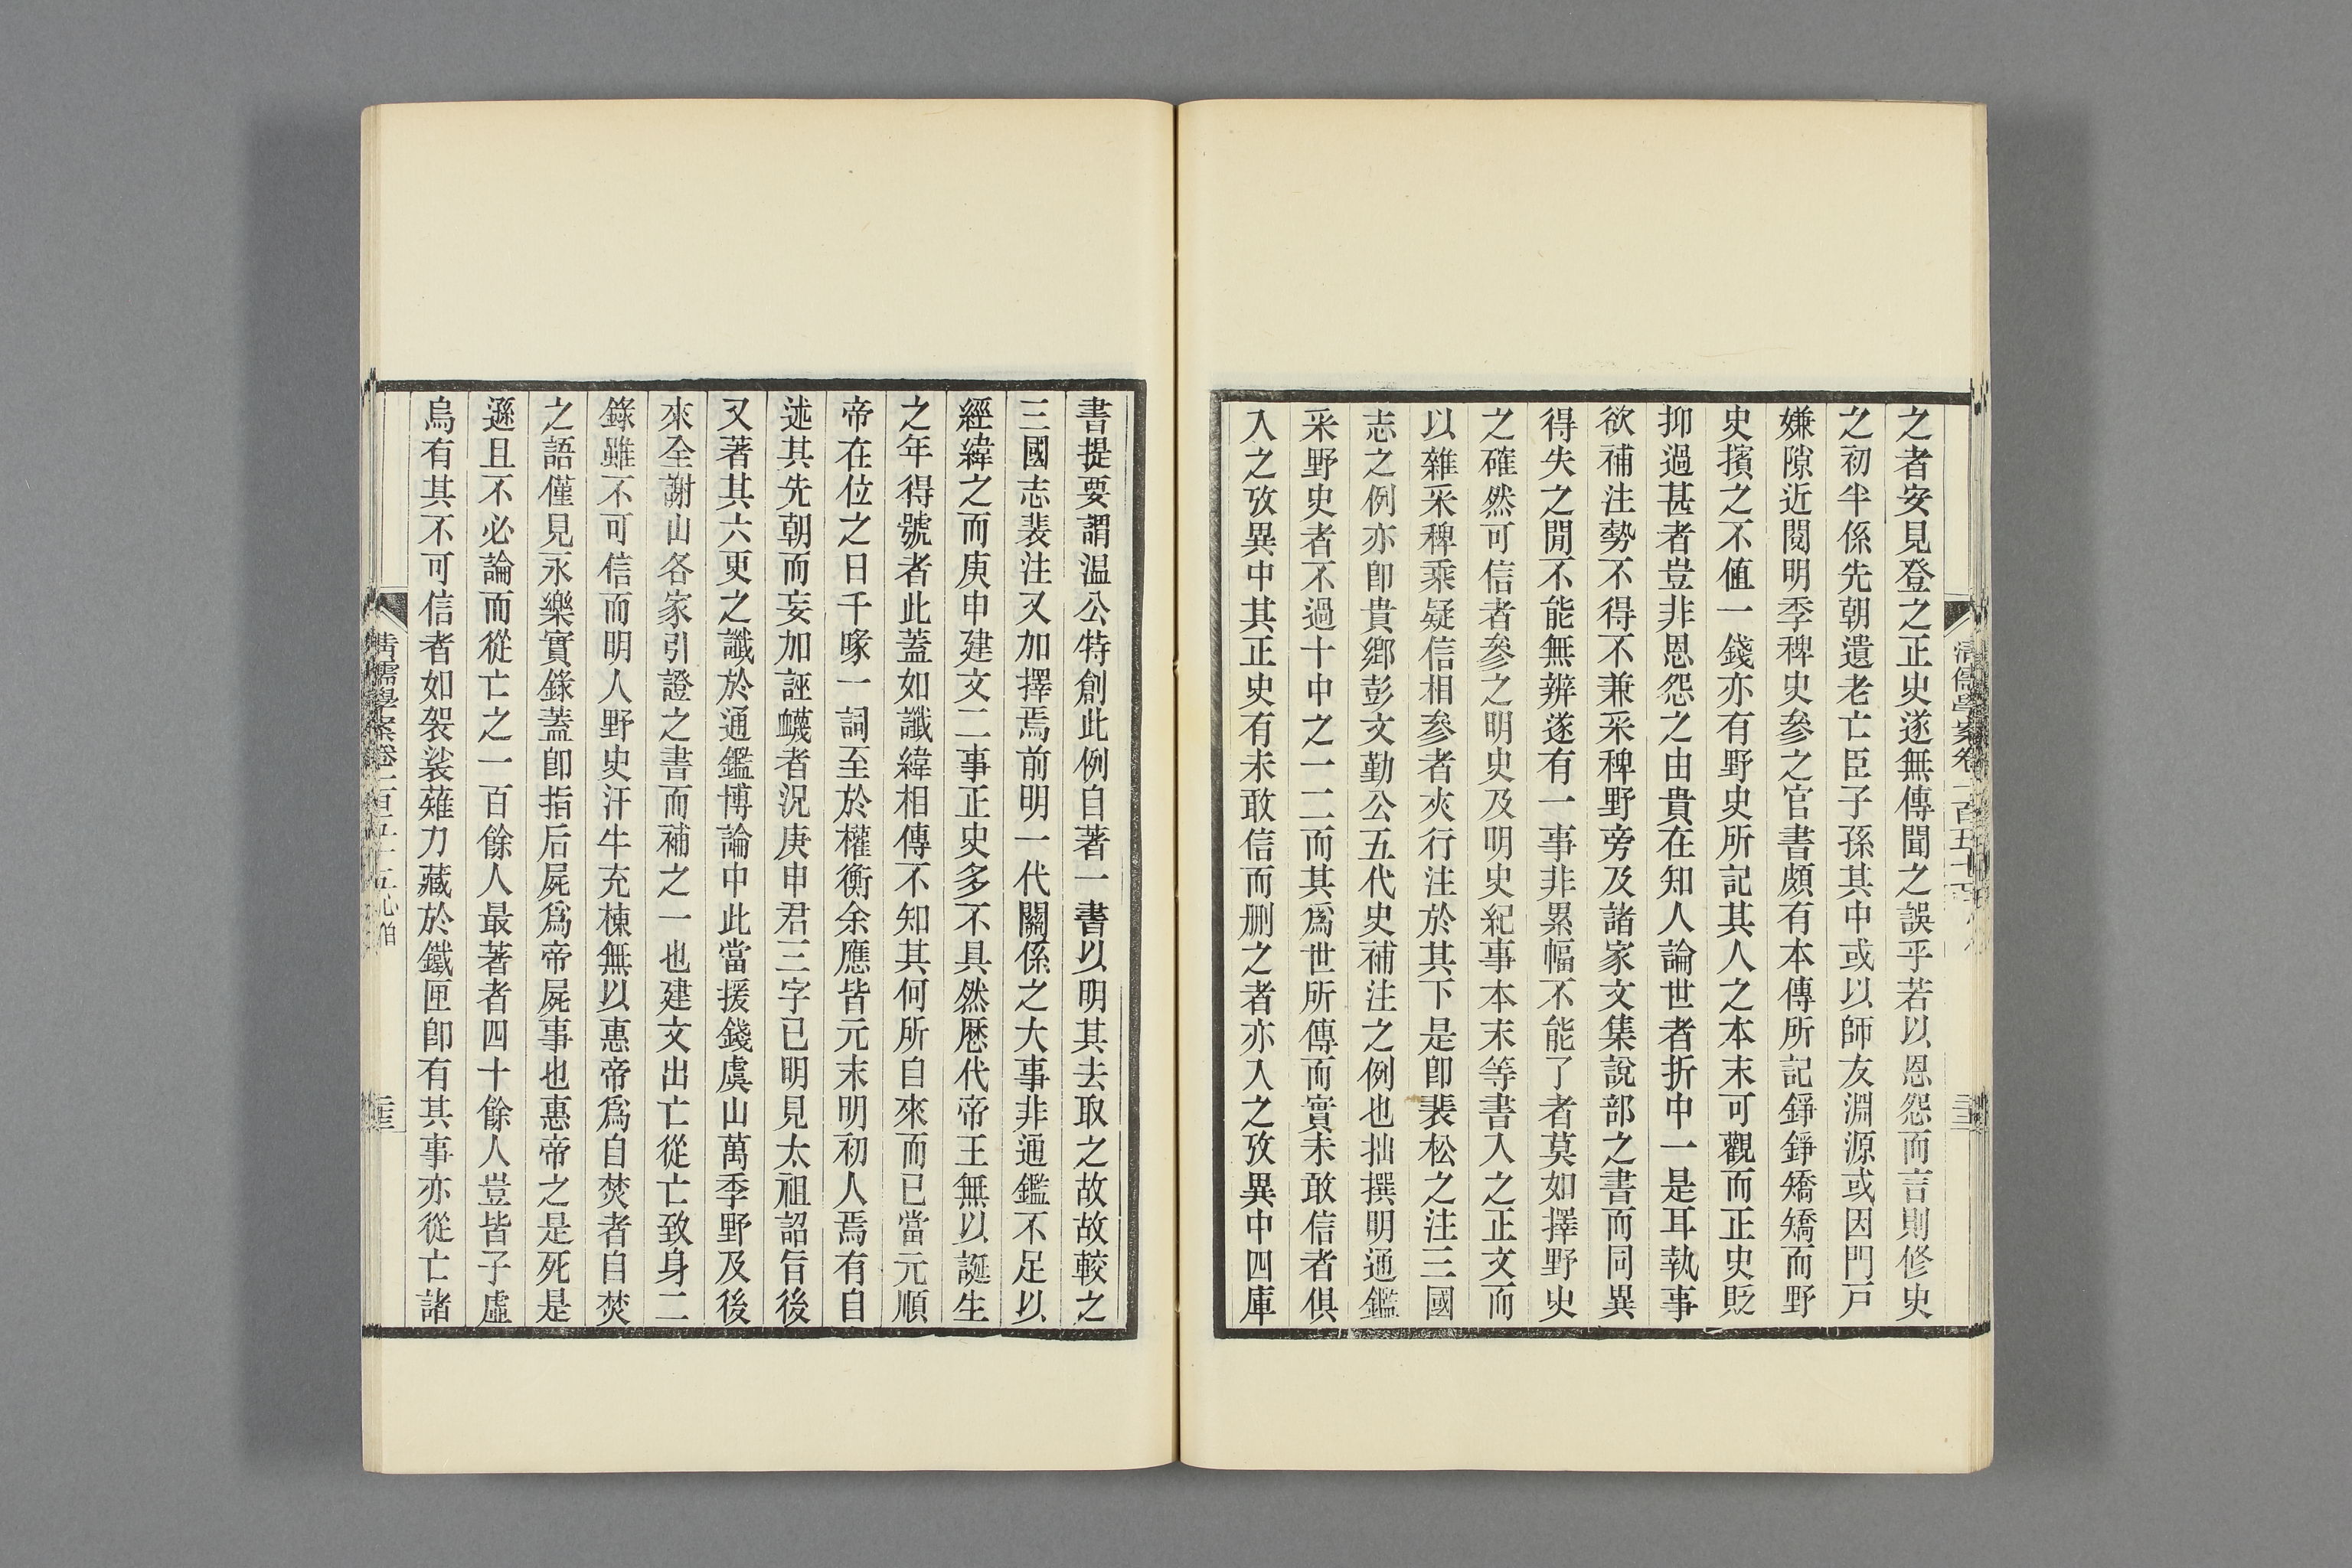 之者安見登之正史遂無傳聞之誤乎若以恩怨而言則修史
之初半係先朝遺老亡臣子孫其中或以師友淵源或因門戸
嫌隙近閱明季稗史參之官書頗有本傳所記錚錚矯矯而野
史擯之不値一錢亦有野史所記其人之本末可觀而正史貶
抑過甚者豈非恩怨之由貴在知人論世者折中一是耳執事
欲補注勢不得不兼采稗野旁及諸家文集說部之書而同異
得失之閒不能無辨遂有一事非累幅不能了者莫如擇野史
之確然可信者參之明史及明史紀事本末等書入之正文而
以雜采稗乘疑信相參者夾行注於其下是卽裴松之注三國
志之例亦卽貴鄉彭文勤公五代史補注之例也拙撰明通鑑
采野史者不過十中之一二而其爲世所傳而實未敢信者俱
入之攷異中其正史有未敢信而刪之者亦入之攷異中四庫
書提要謂温公特創此例自著一書以明其去取之故故較之
三國志裴注又加擇焉前明一代關係之大事非通鑑不足以
經緯之而庚申建文二事正史多不具然厯代帝王無以誕生
之年得號者此蓋如讖緯相傳不知其何所自來而已當元順
帝在位之日千喙一詞至於權衡余應皆元末明初人焉有自
述其先朝而妄加誣衊者況庚申君三字已明見太祖詔旨後
又著其六更之讖於通鑑博論中此當援錢虞山萬季野及後
來全謝山各家引證之書而補之一也建文出亡從亡致身二
錄雖不可信而明人野史汗牛充棟無以惠帝爲自焚者自焚
之語僅見永樂實錄蓋卽指后屍爲帝屍事也惠帝之是死是
遜且不必論而從亡之一百餘人最著者四十餘人豈皆子虛
烏有其不可信者如袈裟薙刀藏於鐵匣卽有其事亦從亡諸
清儒學案卷一百五十五心伯